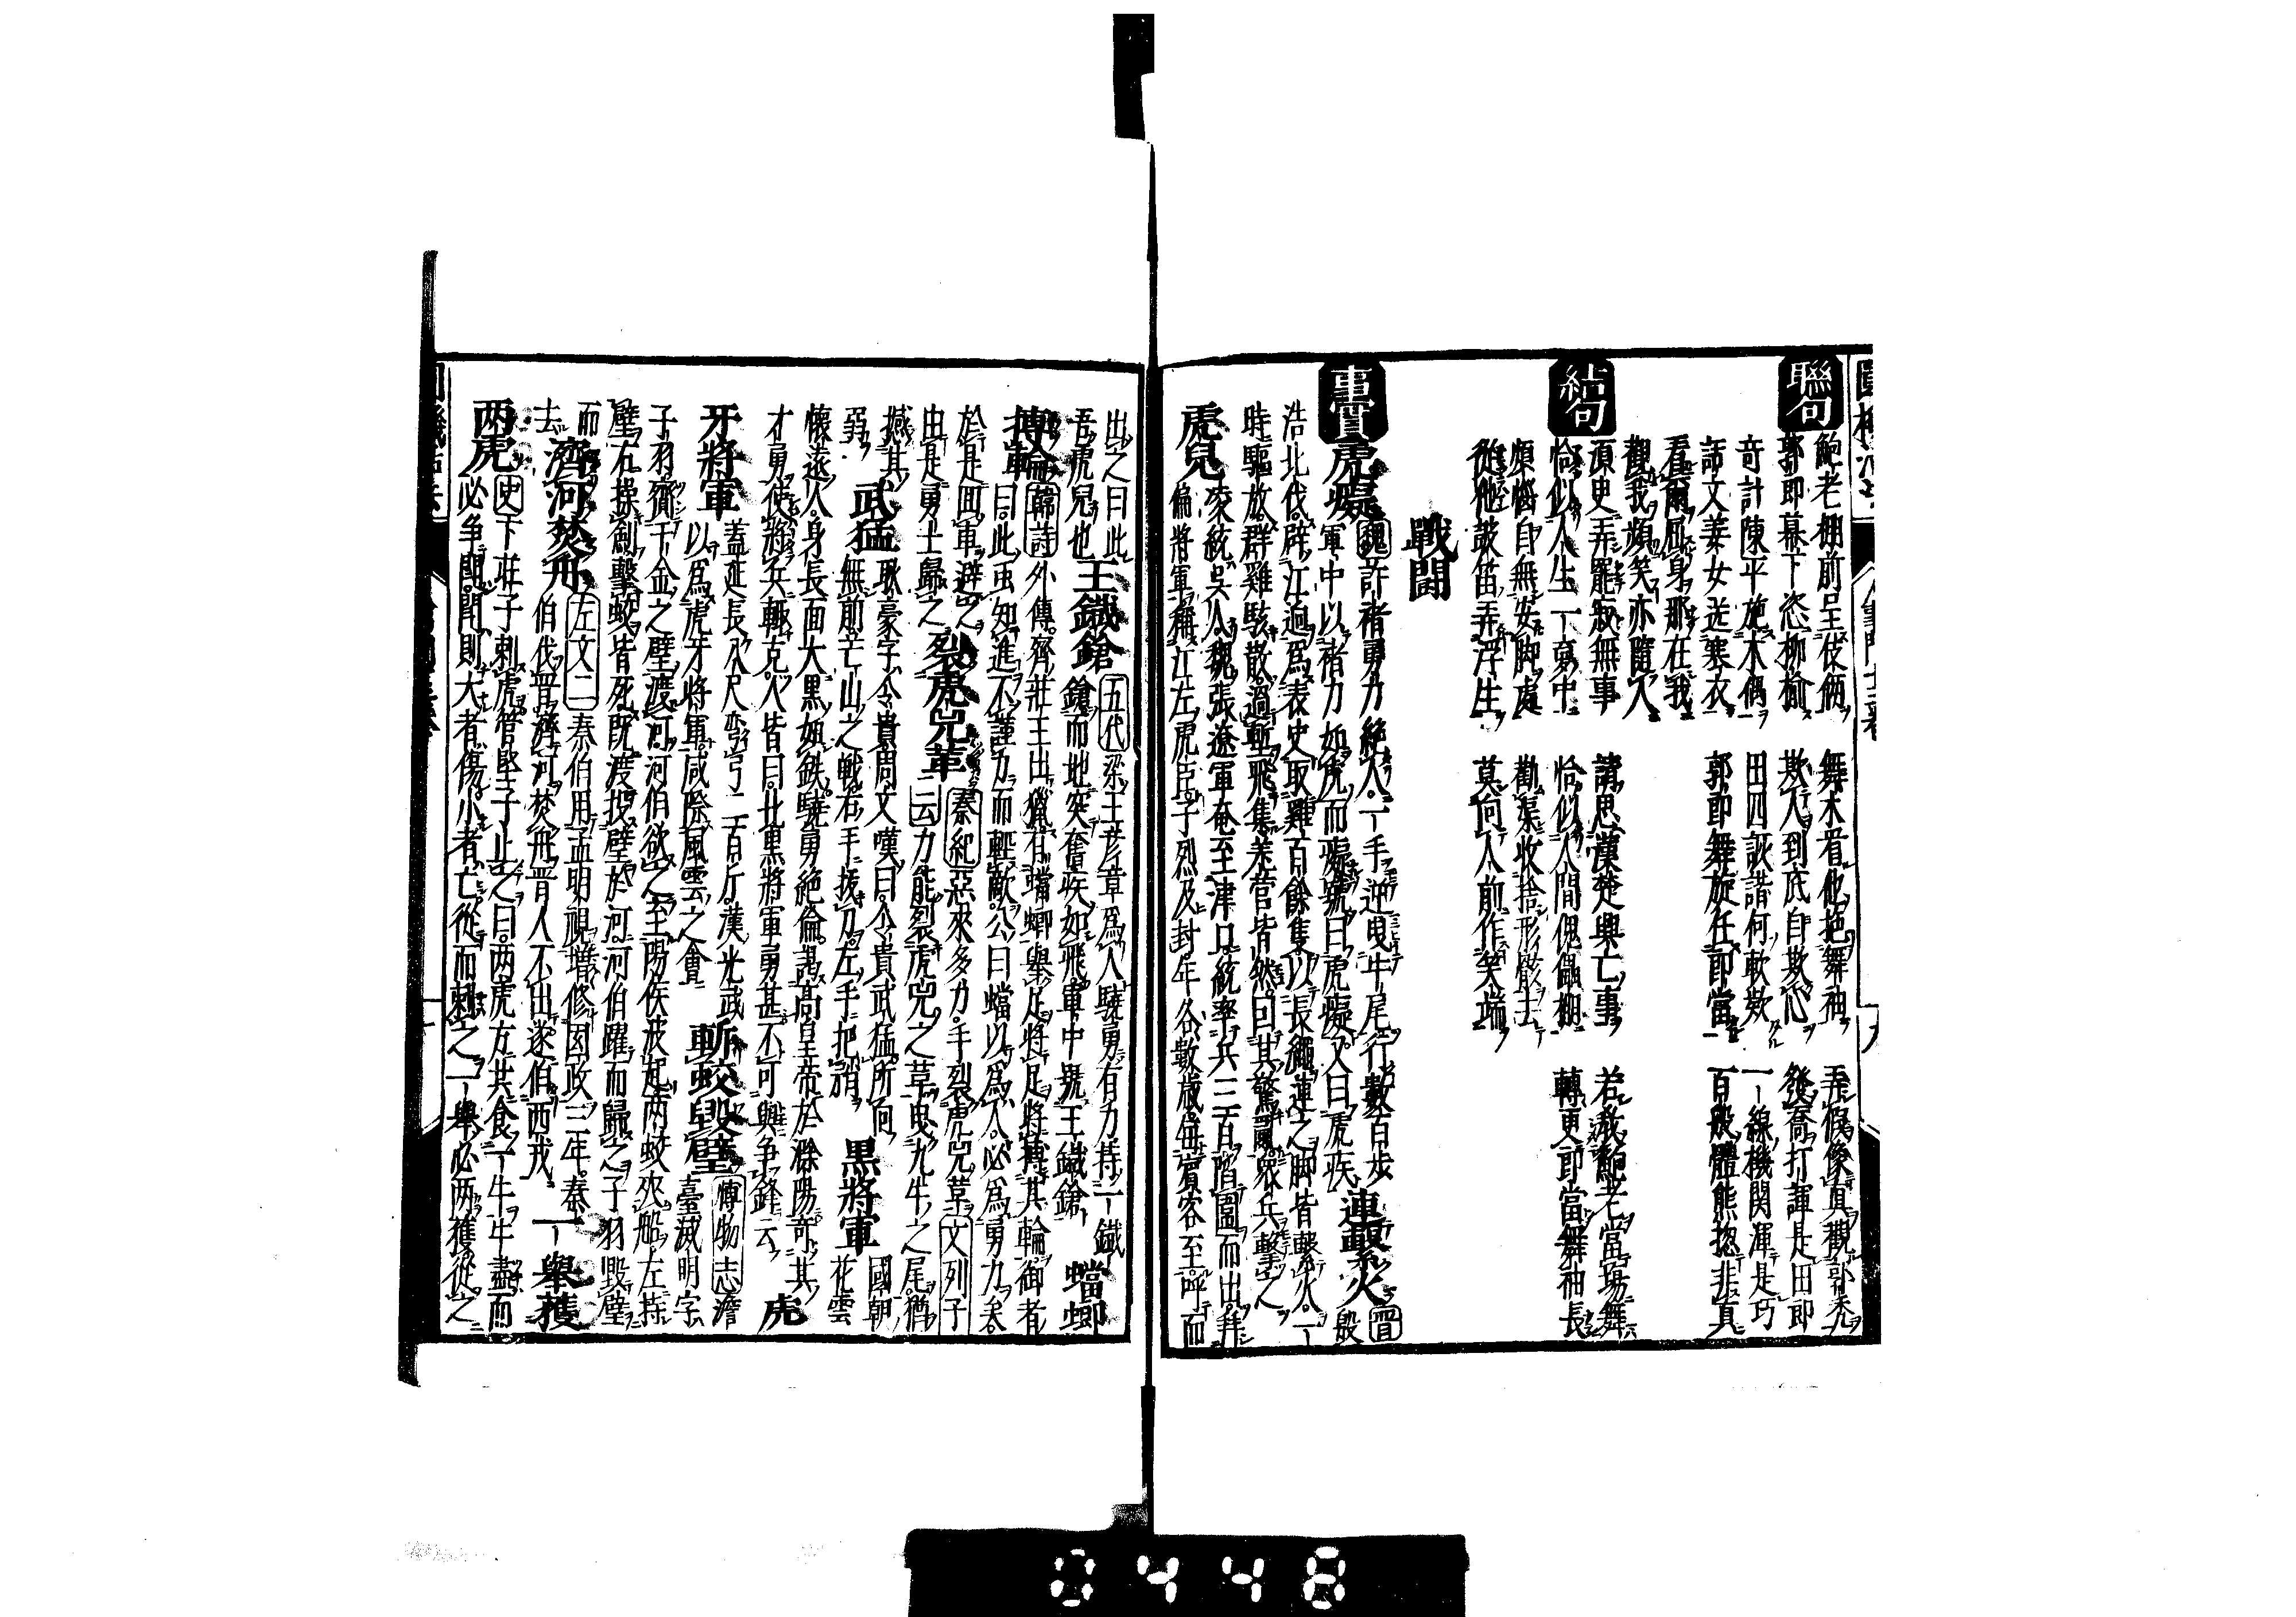 聯句
鮑老棚前呈伎倆 舞木看他拖舞袖 弄假像真觀郭禿
郭郎幕下恣揶揄 欺人到底自欺心 後喬打諢是田郎
奇計陳平施木偶 田四詼諧何軟欺 一線機関渾是巧
詩文姜女送寒衣 郭郎舞旋任郎當 百般體態揔非真
看爾屈身那在我
觀我頻笑亦隨人
結句
湏史弄罷寂無事 請思漢楚興亡事 若教鮑老當場舞
恰似人生一夢中 恰似人間傀儡棚 轉更郎當舞袖長
煩惱自無安脚處 勸渠收拾形骸去
從他鼓笛弄浮生 莫向人前作笑端
戰鬪
事實
虎癡 魏許褚勇力絶人一手逆曳牛尾行數百步
軍中以褚力如虎而癡號曰虎癡又曰虎疾 連繫火 晋殷
浩北伐辟江逌爲表史取雞百餘隻以長繩連之脚皆繫火一
時驅放群雞駭散過塹飛集羌营皆然回其驚亂衆兵擊之
虎兒 凌統吳人魏張遼軍奄至津口統率兵三百陷圍而出拜
偏將軍稱江左虎臣子烈及封年各數歲每賓客至呼而
出之曰此
吾虎兒也 王鐵鎗 五代梁王彦章爲人驍勇有力持一鐵
鎗而地突奮疾如飛軍中號王鐵鎗 蟷螂
搏輪 韓詩外傳齊莊王出獵有蟷螂舉足將搏其輪御者
曰此虫知進不謹力而輕敵公曰蟷以爲人必爲勇力矣
於是囬軍避之
由是勇士歸之 裂虎兕革 秦紀惡來多力手裂虎兕革 文列子
云力能裂虎兕之革曳九牛之尾猶
撼其
弱 武猛 耿豪字令貴周文嘆曰令貴武猛所向
無前芒山之戦右手抜刀左手把矟 黒將軍 國朝
花雲
懷遠人身長面大黒如鉄驍勇絶倫謁高皇帝於滁陽奇其
才勇使將兵輙克人皆曰此黒將軍勇甚不可與争鋒云 虎
牙將軍 盖延長八尺弯弓二百斤漢光武
以爲虎牙將軍咸際風雲之會 斬蛟毀璧 博物志澹
臺滅明字
子羽齎千金之璧渡河河伯欲之至陽侯波起兩蛟夾船左持
璧右操劍擊蛟皆死既渡投璧於河河伯躍而歸之子羽毀璧
而
去 濟河焚舟 左文二秦伯用孟明視增修国政三年秦
伯伐晋濟河焚舟晋人不出遂伯西戎 一舉獲
两虎 史卞莊子刺虎管竪子止之曰两虎方共食一牛牛盡而
必争鬪鬪則大者傷小者亡從而刺之一舉必两獲從之